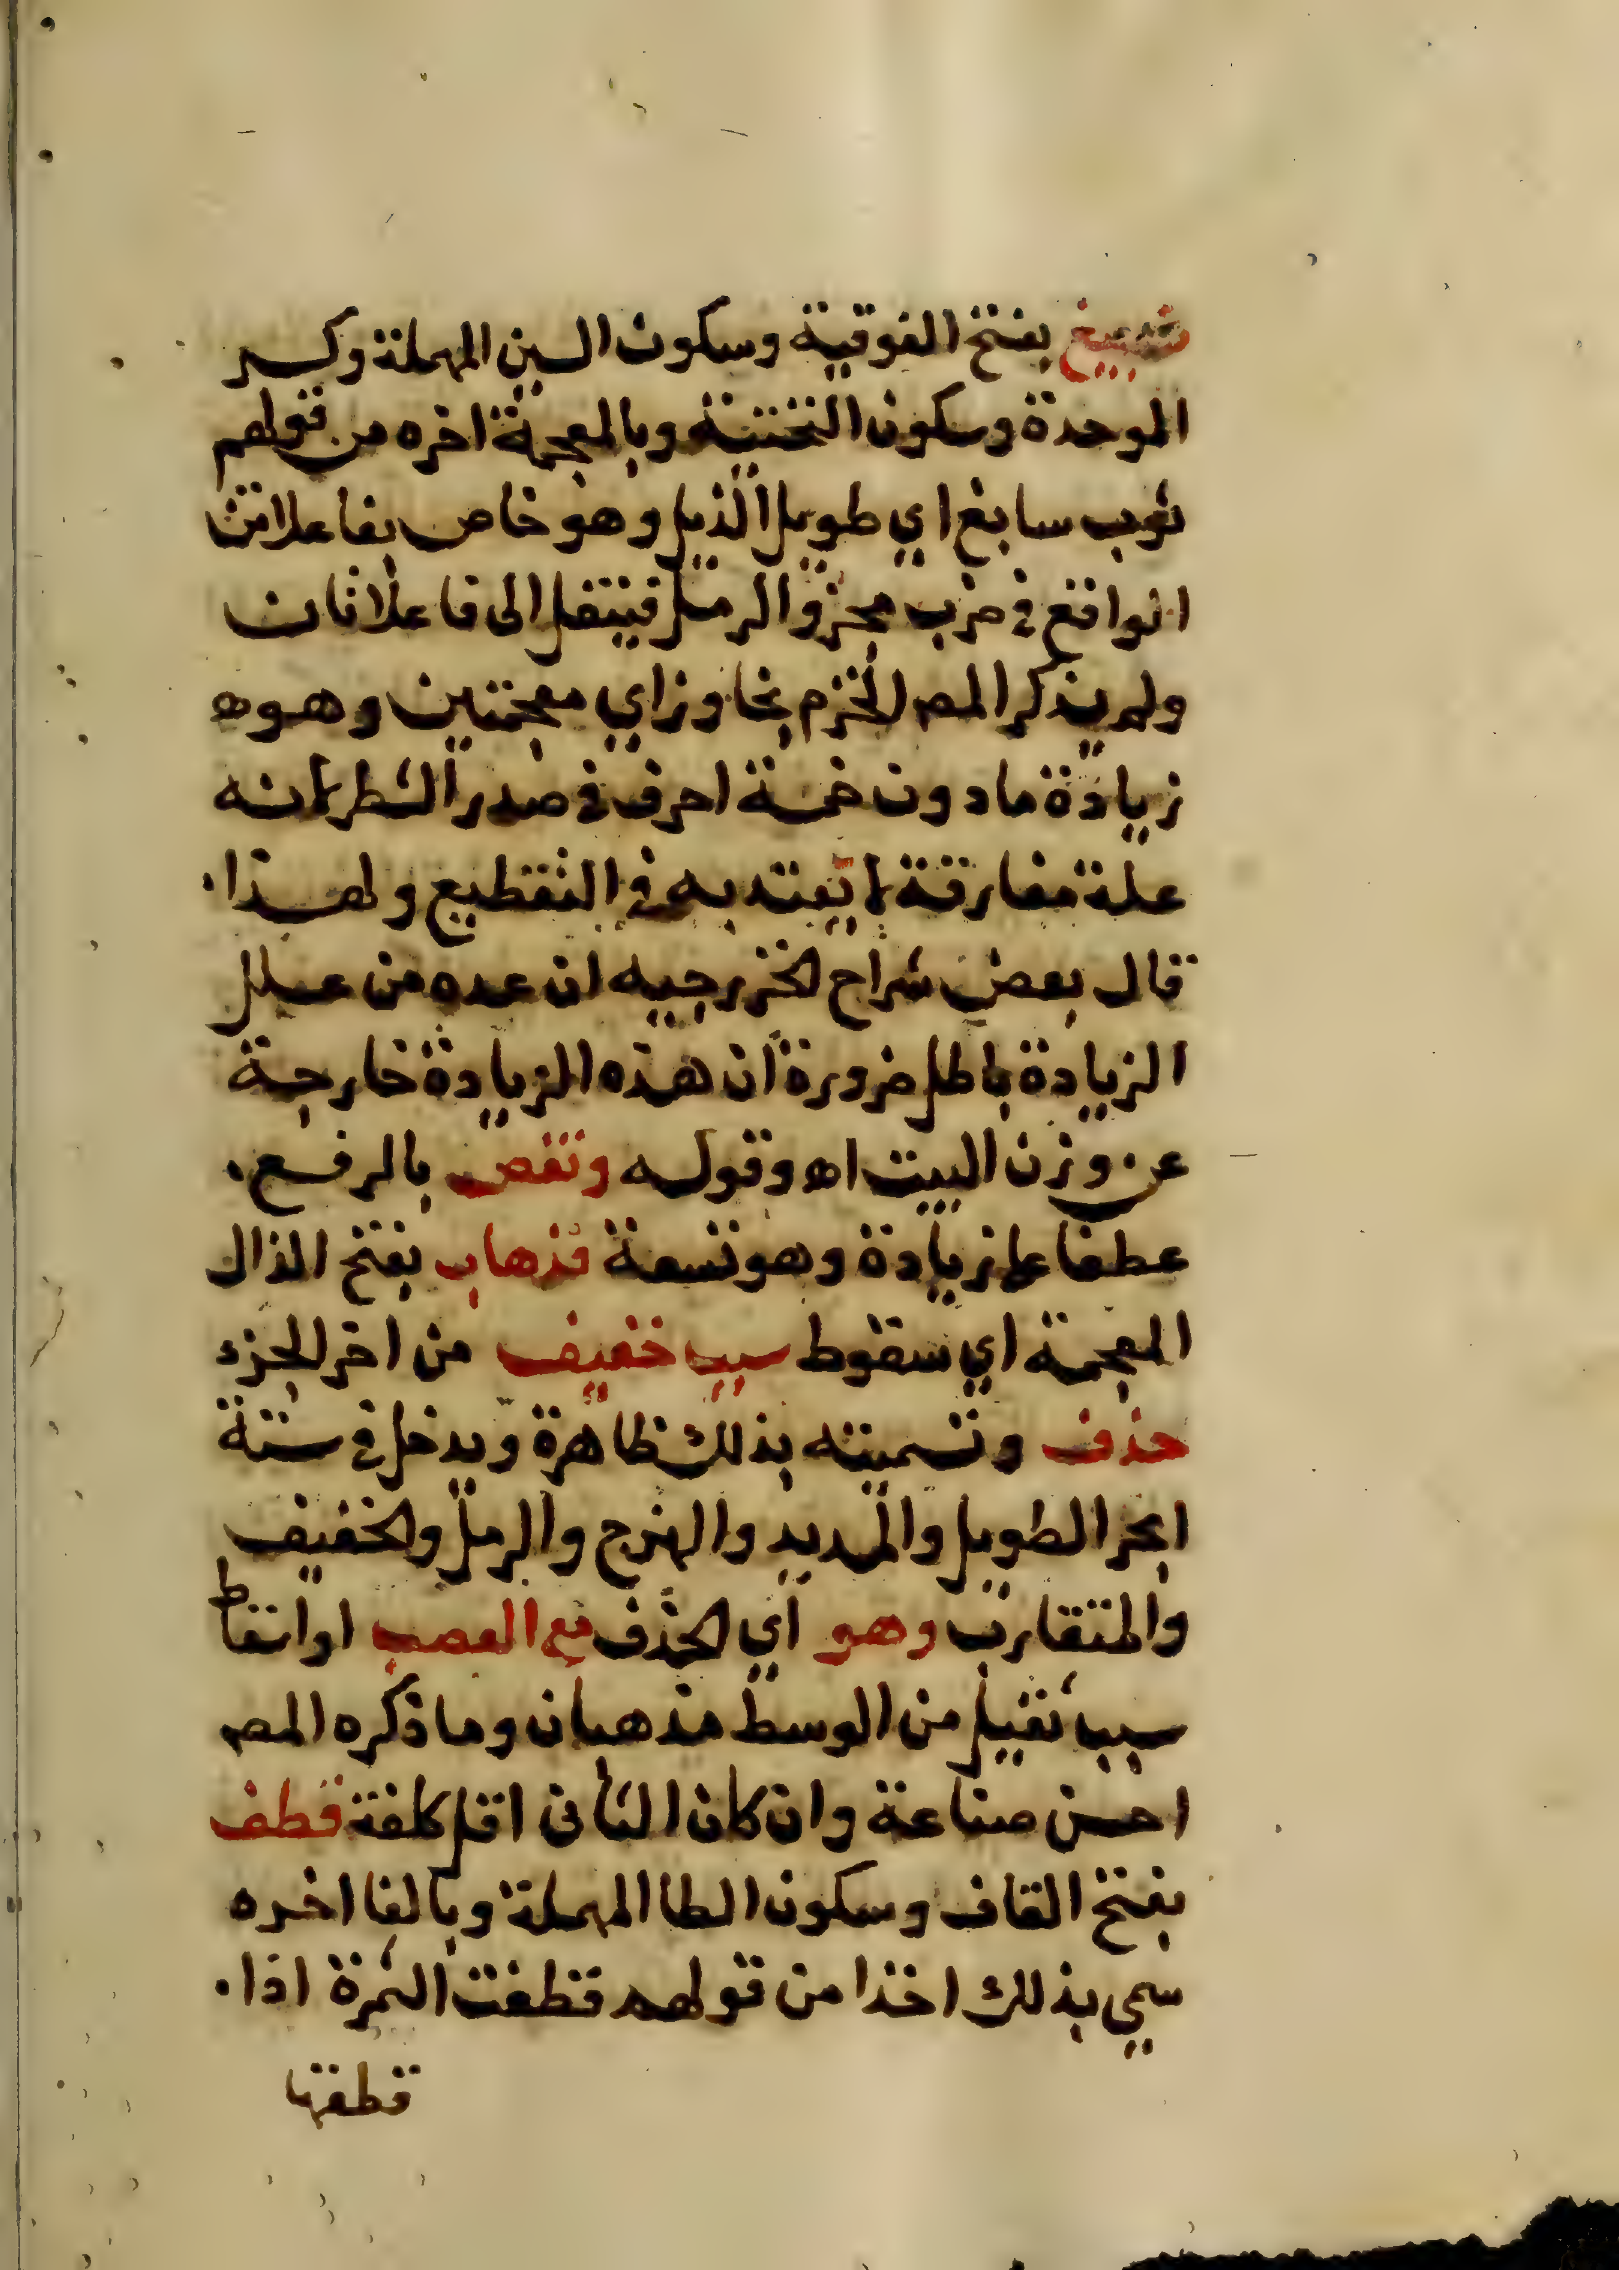 تسبيغ بفتح الفوقية وسكون السين المهملة وكسر
الموحدة وسكون التحتية وبالمعجمة اخره من قولهم
ثوب سابغ اي طويل الذيل وهو خاص بفاعلاتن
الواقع في ضرب مجزو الرمل فينتقل الى فاعلاتان
ولم يذكر المصـ الخزم بخا وزاي معجمتين وهو
زيادة ما دون خمسة احرف في صدر الشطر لانه
علة مفارقة لا يعتد به في التقطيع ولهـذا.
قال بعض شراح الخزرجيه ان عده من عـلل
الزيادة باطل ضرورة ان هذه الزيادة خارجـة
عن وزن البيت اه وقولـه ونقص بالرفـع.
عطفا على زيادة وهو تسعة فذهاب بفتح الذال
المعجمة اي سقوط سبب خفيف من اخر الجزء
حذف وتسميته بذلك ظاهرة ويدخل في ستة
ابحر الطويل والمديد والهزج والرمل والخفيف
والمتقارب وهو اي الحذف مع العصب او اسقاط
سبب ثقيل من الوسط مذهبان وما ذكره المصـ
احسن صناعة وان كان الثاني اقل كلفة قطف
بفتح القاف وسكون الطا المهملة وبالفا اخـره
سمي بذلك اخذا من قولهم قطفت الثمرة اذا.
قطفتها